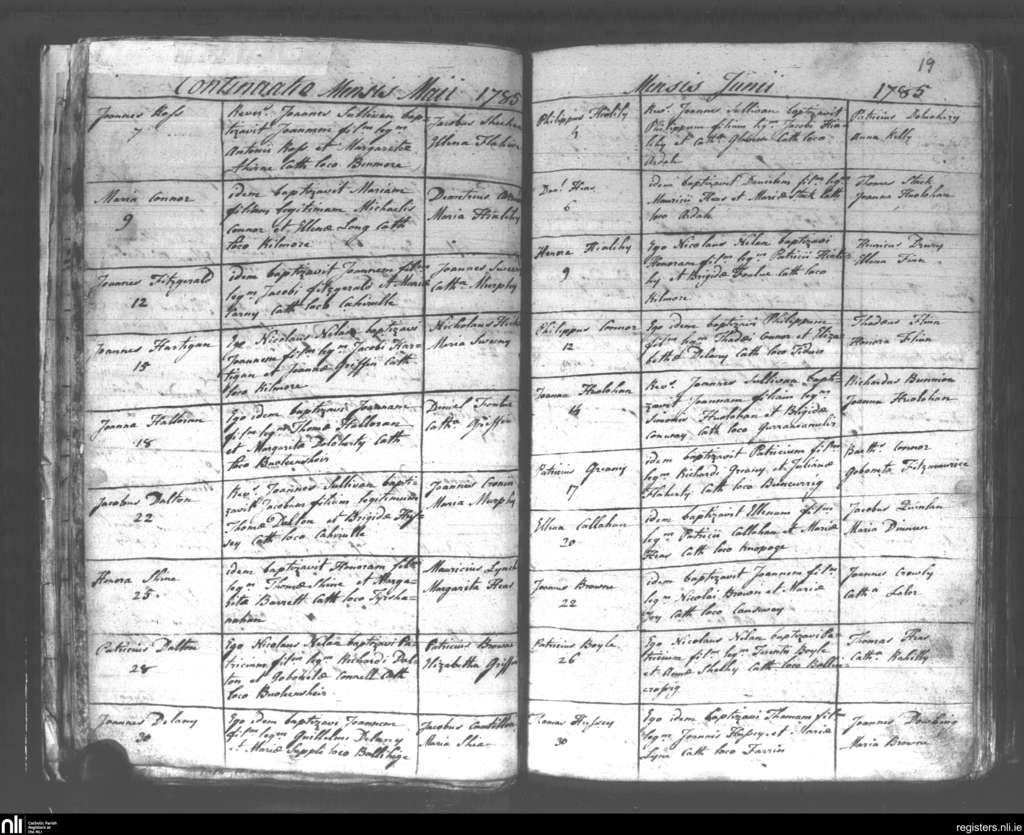 Continuatio Mensis Maii 1785
Joannes Hoss
7
Revds. Joannes Sullivan bap-
tizavit Joannem filum legm
Antonii Hoss et Margaritæ
Cath loco Benmore
Jacobus Sheehan
Ellena Flahive
Maria Connor
9
idem baptizavit Mariam
filiam legitimam Michaelis
Connor et Ellenæ Long Cath
loco Kilmore
Demetrius
Maria Hialihy
Joannes Fitzgerald
12
idem baptizavit Joannem film
legm Jacobi fitzgerald et Mariæ
Cath loco Cahirulla
Joannes Sweeny
Catha Murphy
Joannes Hartigan
15
Ego Nicolaus Nelan baptizavi
Joannem film legm Jacobi Har-
tigan et Joannæ Griffin Cath
loco Kilmore
Nicholaus
Maria Sweeny
Joanna Halloran
18
Ego idem baptizavi Joannam
film legm Thomæ Halloran
et Margaritæ Doloherty Cath
loco Buolensheir
Daniel
Catha Griffin
Jacobus Dalton
22
Revs. Joannes Sullivan bapti-
zavit Jacobum filium legitimum
Thomæ Dalton et Brigidæ Hus-
sey Cath loco Cahirulla
Joannes Cronin
Maria Murphy
Honora Shine
25
idem baptizavit Honoram film
legm Thomæ Shine et Marga-
ritæ Barrett Cath loco Tyrsha-
nahan
Mauricius Lynch
Margarita Heas
Patricius Dalton
28
Ego Nicolaus Nelan baptizavi Pa-
tricium film legm Richardi Dal-
ton et Gobnitæ Connell Cath
loco Buolensheir
Patricius Browne
Elizabetha Griffin
Joannes Delany
30
Ego idem baptizavi Joannem
film legm Guilhelmi Delany
et Mariæ Supple loco Ballihige
Jacobus Cantillon
Maria Shea
19
Mensis Junii 1785
Philippus Hialihy
4
Revs. Joannes Sullivan baptizavit
Philippum filium legm Jacobi Hia-
lihy et Catha Cath loco
Ardah
Patricius
Anna Kelly
Danl Heas
6
idem baptizavit Danielem film legm
Mauricii Heas et Mariæ Stack Cath
loco Ardah
Thomas Stack
Joanna Huolohan
Honora Hialihy
9
Ego Nicolaus Nelan baptizavi
Honoram film legm Patricii Hiali-
hy et Brigidæ Cath loco
Kilmore
Henricus Drury
Ellena Finn
Philippus Connor
12
Ego idem baptizavi Philippum
film legm Thadei Connor et Eliza-
bethæ Delany Cath loco
Thadeus
Honora
Joanna Huolohan
14
Revs. Joannes Sullivan bapti-
zavit Joannam filiam legm
Simonis Huolohan et Brigidæ
Conway Cath loco
Richardus Bunnion
Joanna Huolohan
Patricius Greany
17
idem baptizavit Patricium film
legm Richardi Greany et Julianæ
Flaherty Cath loco Buncurrig
Barths Connor
Gobnata Fitzmaurice
Ellena Callahan
20
idem baptizavit Ellenam film
legm Patricii Callahan et Mariæ
Heas Cath loco Knopoge
Jacobus Quinlan
Maria
Joannes Browne
22
idem baptizavit Joannem film
legm Nicolai Brown et Mariæ
Joy Cath loco Causway
Joannes Crowly
Catha Lalor
Patricius Boyle
26
Ego Nicolaus Nelan baptizavi Pa-
tricium film legm Terentii Boyle
et Annæ Shelhy Cath loco Ballin-
crossig
Thomas Heas
Catha Kahilly
Thomas Hussey
30
Ego idem baptizavi Thomam film
legm Joannis Hussey et Mariæ
Lyne Cath loco Farrin
Joannes Dowling
Maria Browne
nli Catholic Parish
Registers at
the NLI
registers.nli.ie